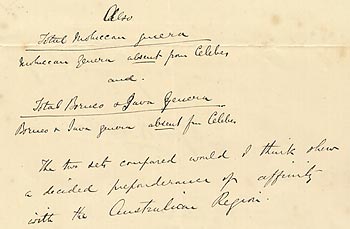 Also
Total Moluccan genera
Moluccan genera absent from Celebes
and.
Total Borneo & Java Genera
Borneo & Java genera absent from Celebes
The two sets compared would I think show
a decided preponderance of affinity
with the Australian Region.